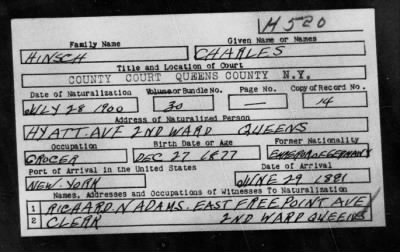 H 520
Family Name Given Name or Names
HINSCH CHARLES
Title and Location of Court
COUNTY COURT QUEENS COUNTY N.Y.
Date of Naturalization Volume or Bundle No. Page No. Copy of Record No.
JULY 28 1900 30 — 14
Address of Naturalized Person
HYATT. AVE 2ND WARD QUEENS
Occupation Birth Date or Age Former Nationality
GROCER DEC 27 1877 EMPEROR OF GERMANY
Port of Arrival in the United States Date of Arrival
NEW. YORK JUNE 29 1881
Names, Addresses and Occupations of Witnesses To Naturalization
1 RICHARD N ADAMS. EAST FREEPOINT AVE
2 CLERK 2ND WARD QUEENS